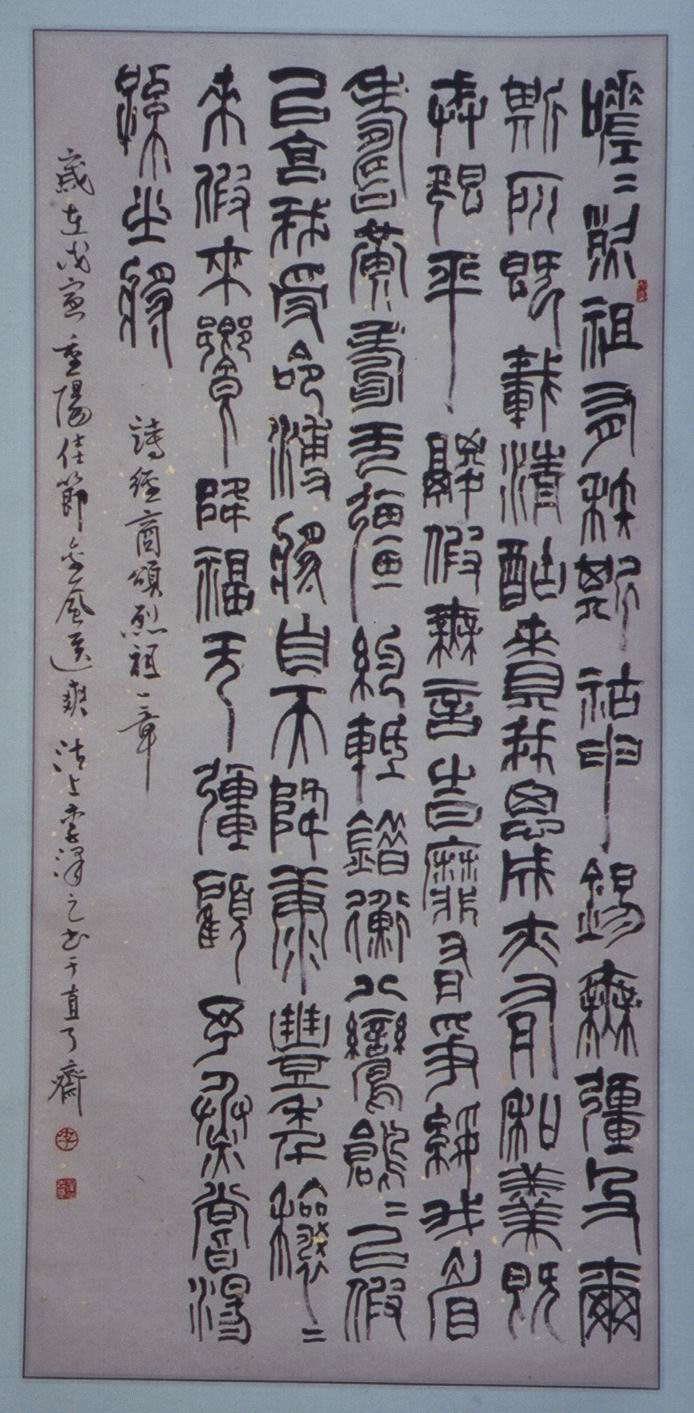 嗟〻烈祖有秩斯祜申錫無疆及爾
斯所既載清酤賚我思成亦有和羹既
戒既平鬷假無言時靡有爭綏我眉
壽黃耇无疆約軧錯衡八鸞鶬〻以假
以享我受命溥將自天降康豐年穰〻
來假來饗降福无疆顧予烝嘗湯
孫之將
詩經商頌烈祖一章
歲在戊寅重陽佳節金風送爽沽上李澤之书于直了齋